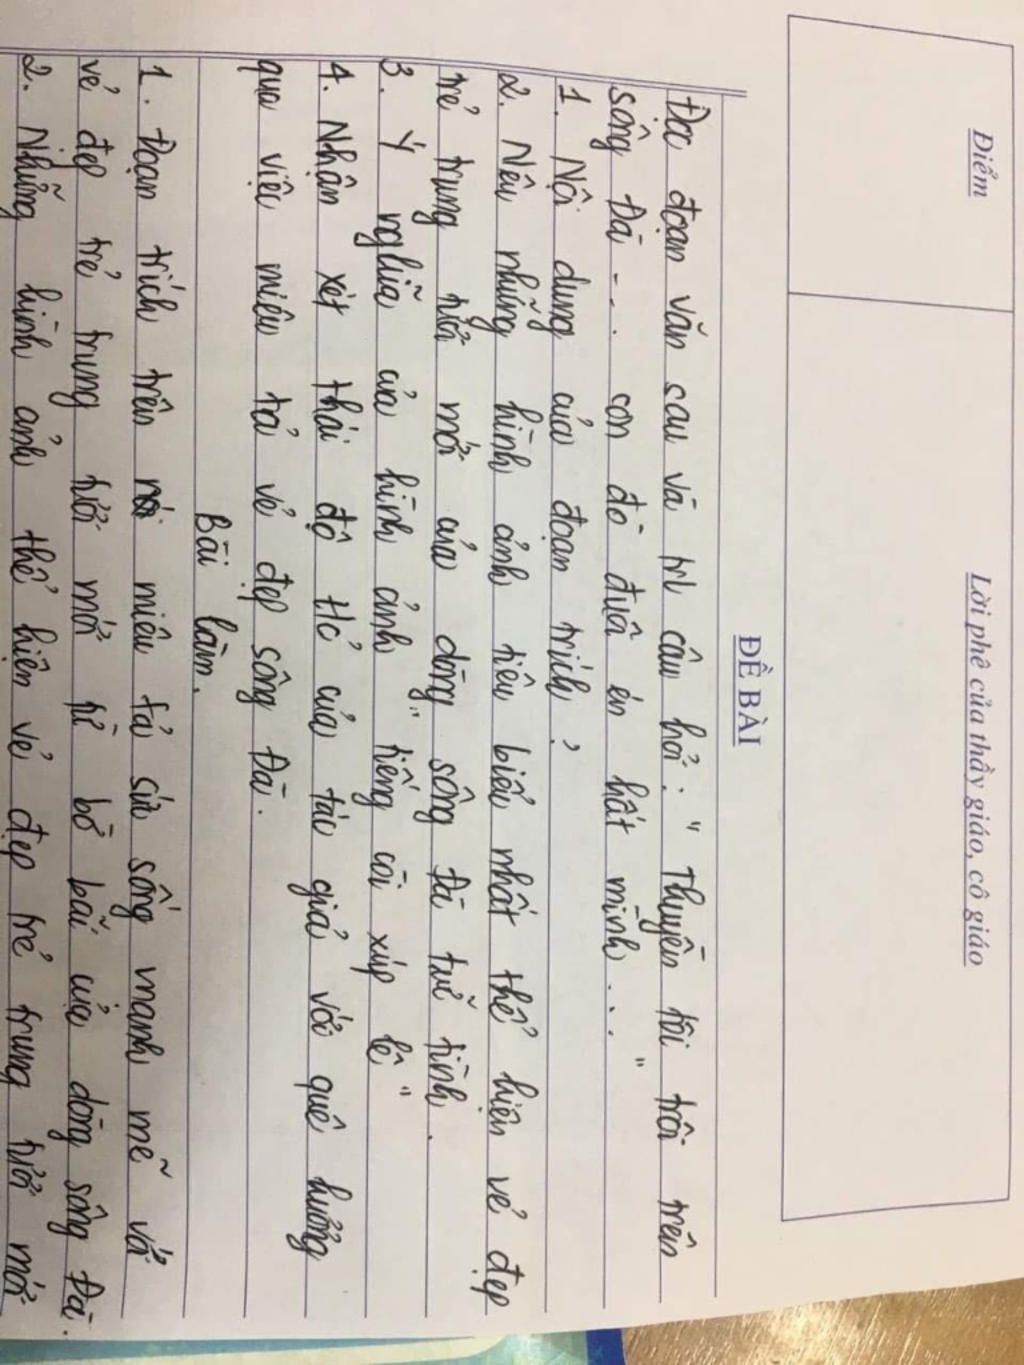 Điểm
Lời phê của thầy giáo, cô giáo
ĐỀ BÀI
Đọc đoạn văn sau và trl câu hỏi: " Thuyền tôi trôi trên
sông Đà - . . con đò đuôi én hất mình . . . "
1. Nội dung của đoạn trích ?
2. Nêu những hình ảnh tiêu biểu nhất thể hiện vẻ đẹp
trẻ trung tươi mới của dòng sông Đà trữ tình .
3. Ý nghĩa của hình ảnh " tiếng còi xúp lê "
4. Nhận xét thái độ tc của tác giả với quê hương
qua việc miêu tả vẻ đẹp sông Đà .
Bài làm .
1 . Đoạn trích trên miêu tả sức sống mạnh mẽ với
vẻ đẹp trẻ trung tươi mới bờ bãi của dòng sông Đà .
2. Những hình ảnh thể hiện vẻ đẹp trẻ trung tươi mới